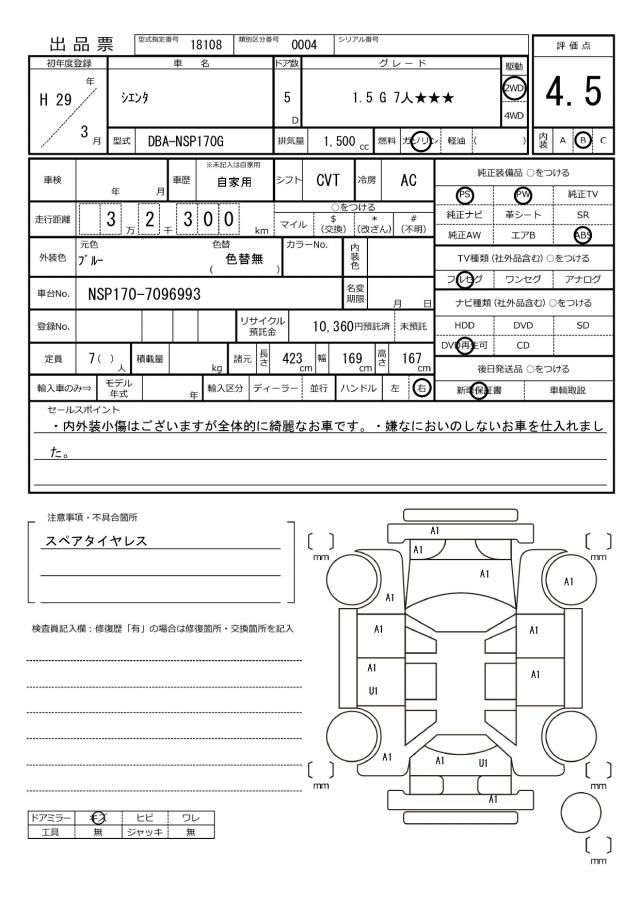 出品票 型式指定番号 18108 類別区分番号 0004 シリアル番号
評価点
4.5
内装 A B C
初年度登録 車名 ドア数 グレード 駆動
H 29 年 3 月
シエンタ 5 D 1.5 G 7人★★★ 2WD 4WD
型式 DBA-NSP170G 排気量 1,500 cc 燃料 ガソリン 軽油 ( )
車検 年 月 車歴 ※未記入は自家用 自家用 シフト CVT 冷房 AC
走行距離 3 万 2 千 3 0 0 km
○をつける
マイル $(交換) *(改ざん) #(不明)
外装色 元色 ブルー 色替 ( 色替無 ) カラーNo. 内装色
車台No. NSP170-7096993 名変期限 月 日
登録No. リサイクル預託金 10,360円預託済 未預託
定員 7( ) 人 積載量 kg 諸元 長さ 423 cm 幅 169 cm 高さ 167 cm
輸入車のみ⇒ モデル年式 年 輸入区分 ディーラー 並行 ハンドル 左 右
純正装備品 ○をつける
PS PW 純正TV
純正ナビ 革シート SR
純正AW エアB ABS
TV種類(社外品含む) ○をつける
フルセグ ワンセグ アナログ
ナビ種類(社外品含む) ○をつける
HDD DVD SD
DVD再生可 CD
後日発送品 ○をつける
新車保証書 車輌取説
セールスポイント
・内外装小傷はございますが全体的に綺麗なお車です。・嫌なにおいのしないお車を仕入れまし
た。
注意事項・不具合箇所
スペアタイヤレス
検査員記入欄：修復歴「有」の場合は修復箇所・交換箇所を記入
ドアミラー キズ ヒビ ワレ
工具 無 ジャッキ 無
A1
A1
mm
mm
A1
A1
A1
A1
A1
A1
A1
U1
A1
A1
U1
mm
mm
A1
mm